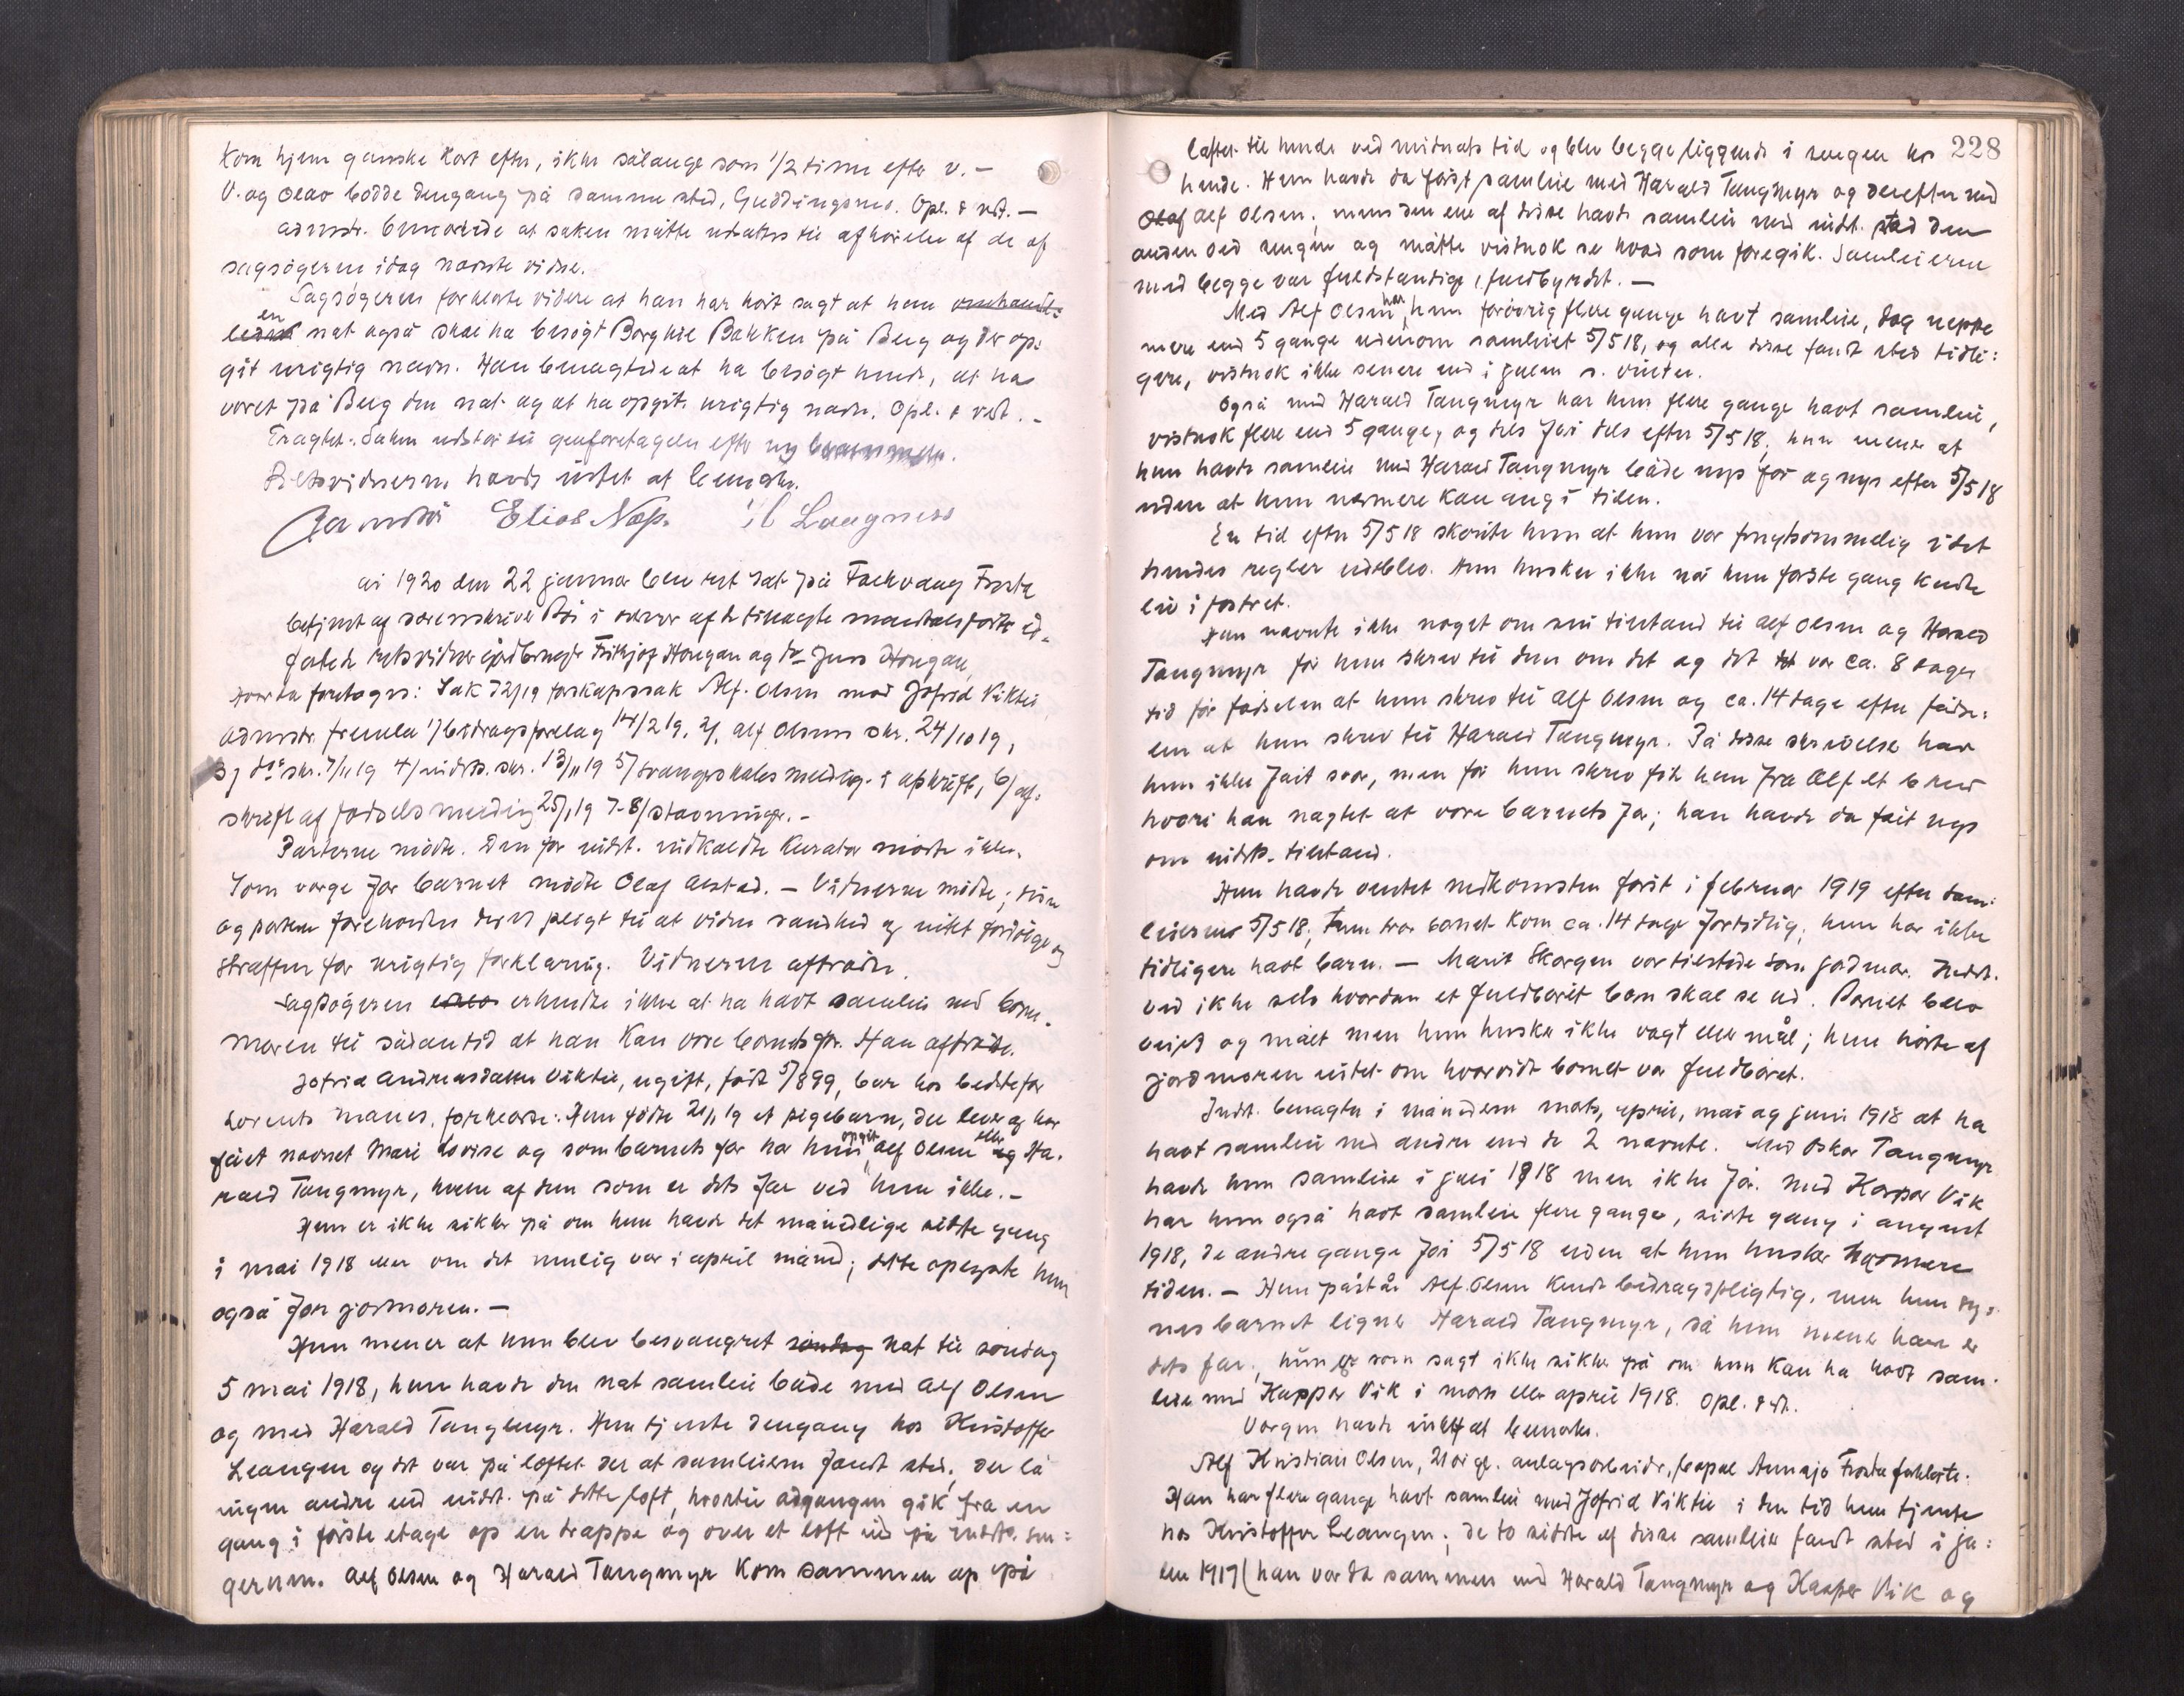 kom hjem ganske kort efter, ikke sålange som 1/2 time efter v. –
V. og Olav bodde dengang på samme sted, Guddingsmo. Opl. & vedt. –
admstr. bemerkede at saken måtte utsættes til afhörelse af de af
sagsögeren idag nævnte vidne.
Sagsögeren forklarte videre at han har hört sagt at han omhand-
ledes en nat også skal ha besögt Borghil Bakken på Berg og der op-
git urigtig navn. Han benægtede at ha besögt hende, at ha
været på Berg den nat og at ha opgit urigtig navn. Opl. & vedt. –
Fragtet. Saken utstår til genforetagelse efter ny berammelse.
Retsvidnerne havde intet at bemerke.
Elias Næss. Langness
År 1920 den 22 januar blev ret sat på Frosta
betjent af sorenskriver Bö i overvær af de tilkaldte mandtalsförte ed-
fæstede retsvidner gårdbruger Fritjof Hougan og do Jens Hougan,
hvorda foretoges: Sak 72/19 farskapssak Alf Olsen mod Jofrid Viktil
admstr. fremla 1/ bidragsforelæg 14/2 19, 2/ Alf Olsens skr. 24/10 19,
3/ dos skr. 7/11 19 4/ indst. skr. 13/11 19 5/ svangerskabsmelding i afskrift, 6/ af-
skrift af födselsmelding 25/1 19 7-8/ stævninger. –
Parterne mödte. Den for indst. indkaldte kurator mödte ikke.
Som verge for barnet mödte Olaf Alstad. – Vidnerne mödte; disse
og parterne foreholdtes deres pligt til at vidne sandhed og intet fordölge og
straffen for urigtig forklaring. Vidnerne aftrådte.
Sagsögeren erkjendte ikke at ha havt samleie med barne-
moren til sådan tid at han kan være barnets far. Han aftrådte.
Jofrid Andreasdatter Viktil, ugift, födt 5/7 899, bor hos bedstefar
Lorents Manes, forklarte: Hun födte 21/1 19 et pigebarn, der lever og har
fået navnet Mari Lovise og som barnets far har hun opgit Alf Olsen eller og Ha-
rald Tangmyr, hvem af dem som er dets far ved hun ikke. –
Hun er ikke sikker på om hun havde det månedlige sidste gang
i mai 1918 eller om det mulig var i april måned; dette oplyste hun
også for jormoren. –
Hun mener at hun blev besvangret söndag nat til söndag
5 mai 1918, hun havde den nat samleie både med Alf Olsen
og med Harald Tangmyr. Hun tjente dengang hos Kristoffer
Leangen og det var på loftet der at samleierne fandt sted; der lå
ingen andre end indst. på dette loft, hvortil adgangen gik fra en
gang i förste etage op en trappe og over et loft ind på indst. sen-
gerum. Alf Olsen og Harald Tangmyr kom sammen op på
228
loftet til hende ved midnats tid og blev begge liggende i sengen hos
hende. Hun havde da först samleie med Harald Tangmyr og derefter med
Olaf Alf Olsen; mens den ene af disse havde samleie med indst. stod den
anden ved sengen og måtte vistnok se hvad som foregik. Samleierne
med begge var fuldstændige, fuldbyrdet. –
Med Alf Olsen har hun forövrig flere gange havt samleie, dog neppe
mere end 5 gange udenom samleiet 5/5 18, og alle disse fandt sted tidli-
gere, vistnok ikke senere end i julen s. vinter.
Også med Harald Tangmyr har hun flere gange havt samleie,
vistnok flere end 5 gange, og dels för dels efter 5/5 18, hun mener at
hun havde samleie med Harald Tangmyr både nys för og nys efter 5/5 18
uden at hun nærmere kan angi tiden.
En tid efter 5/5 18 skönte hun at hun var frugtsommelig idet
hendes regler udeblev. Hun husker ikke når hun förste gang kendte
liv i fostret.
Hun nævnte ikke noget om sin tilstand til Alf Olsen og Harald
Tangmyr för hun skrev til dem om det og det var ca. 8 dages
tid för födselen at hun skrev til Alf Olsen og ca. 14 dage efter födse-
len at hun skrev til Harald Tangmyr. På disse skrivelser har
hun ikke fåit svar, men för hun skrev fik hun fra Alf et brev
hvori han nægtet at være barnets far; han havde da fåit nys
om indst. tilstand.
Hun havde ventet nedkomsten först i februar 1919 efter sam-
leierne 5/5 18, hun tror barnet kom ca. 14 dage fortidlig; hun har ikke
tidligere havt barn. – Marit Skorgen var tilstede som jordmor. Indst.
ved ikke selv hvordan et fuldbåret barn skal se ud. Barnet blev
veiet og målt men hun husker ikke vægt eller mål; hun hörte af
jordmoren intet om hvorvidt barnet var fuldbåret.
Indst. benægter i månederne mars, april, mai og juni 1918 at ha
havt samleie med andre end de 2 nævnte. Med Oskar Tangmyr
havde hun samleie i juli 1918 men ikke för. Med Kaspar Vik
har hun også havt samleie flere gange, sidste gang i august
1918, de andre gange för 5/5 18 uden at hun husker nærmere
tiden. – Hun påstår Alf Olsen kendt bidragspligtig, men hun sy-
nes barnet ligner Harald Tangmyr, så hun mener han er
dets far; hun er som sagt ikke sikker på om hun kan ha havt sam-
leie med Kasper Vik i mars eller april 1918. Opl. & vedt.
Vergen havde intet at bemerke.
Alf Kristian Olsen, 21 år gl. anlægsarbeider, bopæl Frosta forklarte:
Han har flere gange havt samleie med Jofrid Viktil i den tid hun tjente
hos Kristoffer Leangen; de to sidste af disse samleier fandt sted i ju-
len 1917 (han var da sammen med Harald Tangmyr og Kasper Vik og